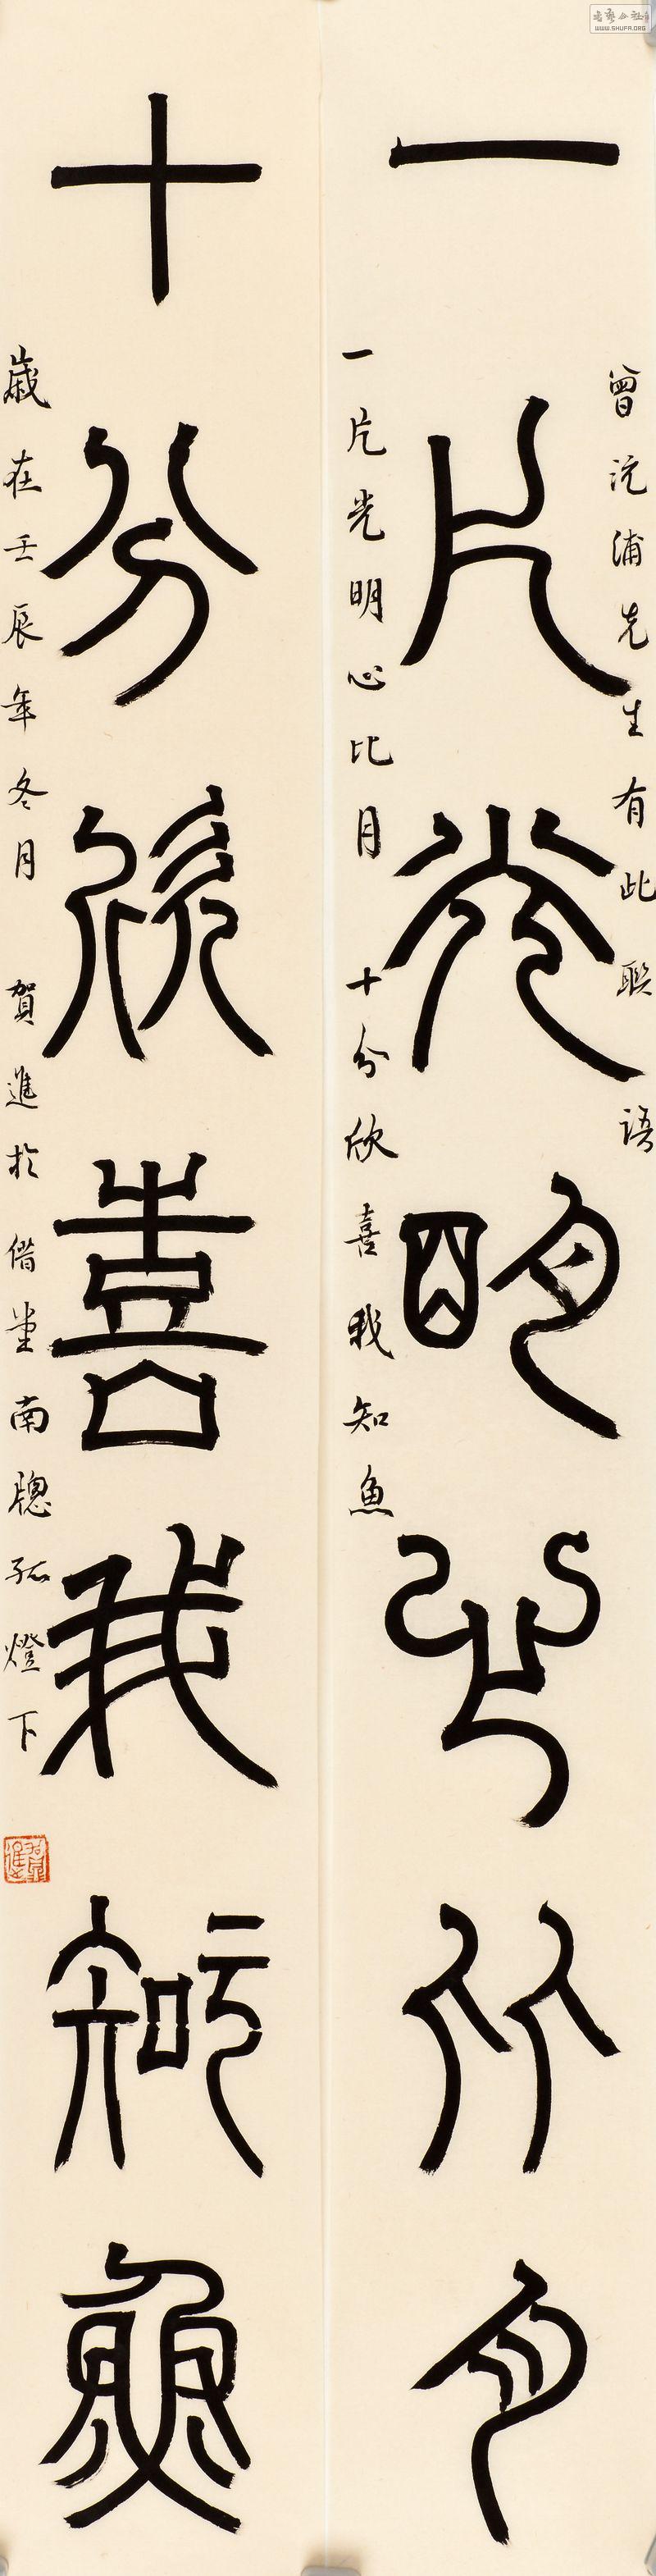 曾沅浦先生有此聯語
一片光明心比月
一片光明心比月 十分欣喜我知魚
十分欣喜我知魚
歲在壬辰年冬月 賀進於借堂南聰孤燈下
WWW.SHUFA.ORG